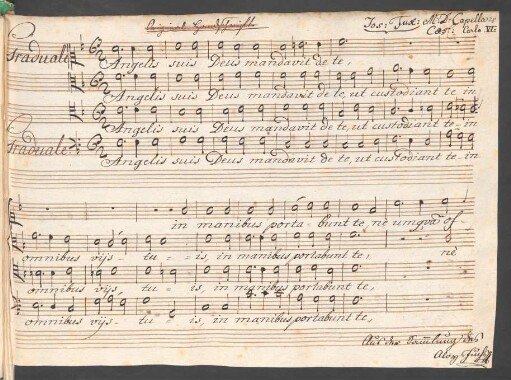 Original Handschrift
Jos: Fux: M: D: Capellae
Caes: Carlo VI:
Graduale
Angelis suis Deus mandavit de te,
Angelis suis Deus mandavit de te, ut custodiant te in
Angelis suis Deus mandavit de te, ut custodiant te-in
Graduale
Angelis suis Deus mandavit de te, ut custodiant te-in
in manibus porta-bunt te, ne umqvã of-
omnibus vijs-tu-is, in manibus portabunt te, nè
omnibus vijs, tu-is, in manibus portabunt te,
omnibus vijs-tu-is, in manibus portabunt te,
Aus der Sammlung des
Aloys Fuchs